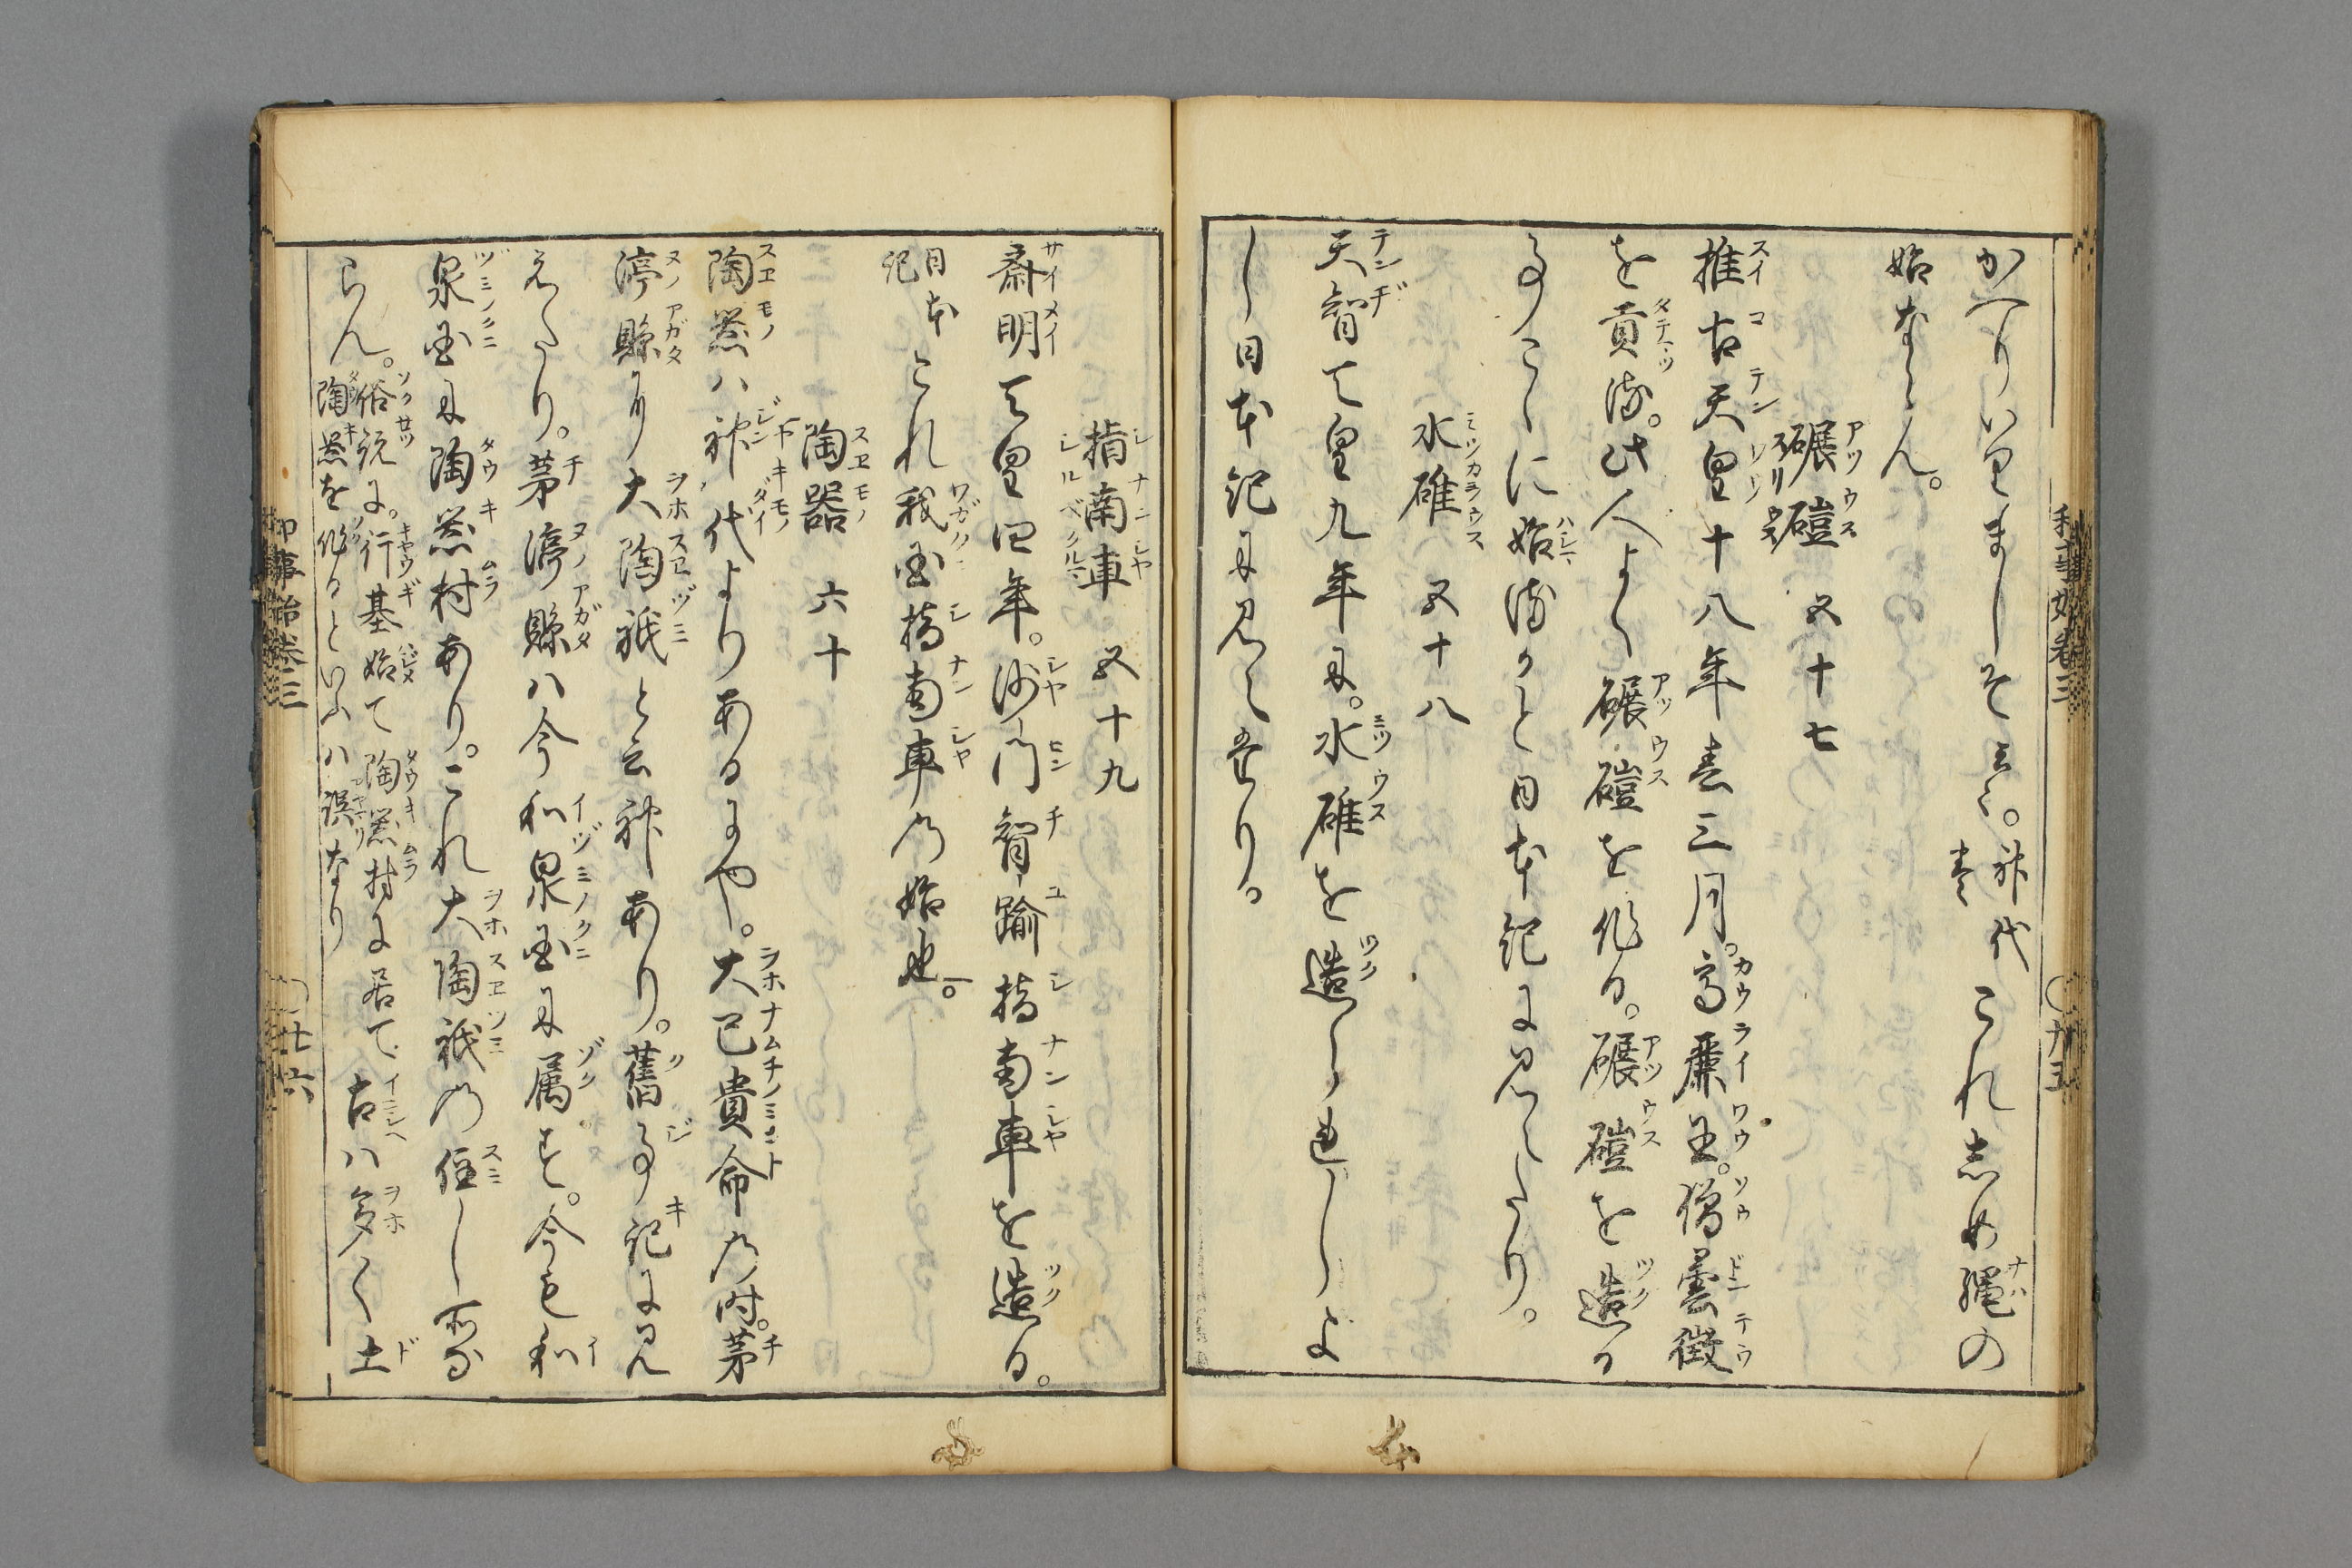 かへりいりましそと云々。神代巻 これしめ縄の
始ならん。
碾磑 五十七
推古天皇十八年春三月。高麗王。僧曇徴
を貢る。此人よく碾磑を作る。碾磑を造る
事こゝに始るかと日本記に見えたり。
水碓 五十八
天智天皇九年に。水碓を造らしむよ
し日本記に見えたり。
指南車 五十九
斎明天皇四年。沙門智踰指南車を造る。
日本記 これ我国指南車の始也。
陶器 六十
陶器ハ神代よりあるにや。大己貴命の時。茅
渟縣に大陶祇と云神あり。舊事記に見
えたり。茅渟縣ハ今和泉国に属す。今も和
泉国に陶器村あり。これ大陶祇の住し所な
らん。俗説に。行基始て陶器村に居て
陶器を作るといふハ誤なり 古ハ多く土
和事始巻三 〇廿五
和事始巻三 〇廿六